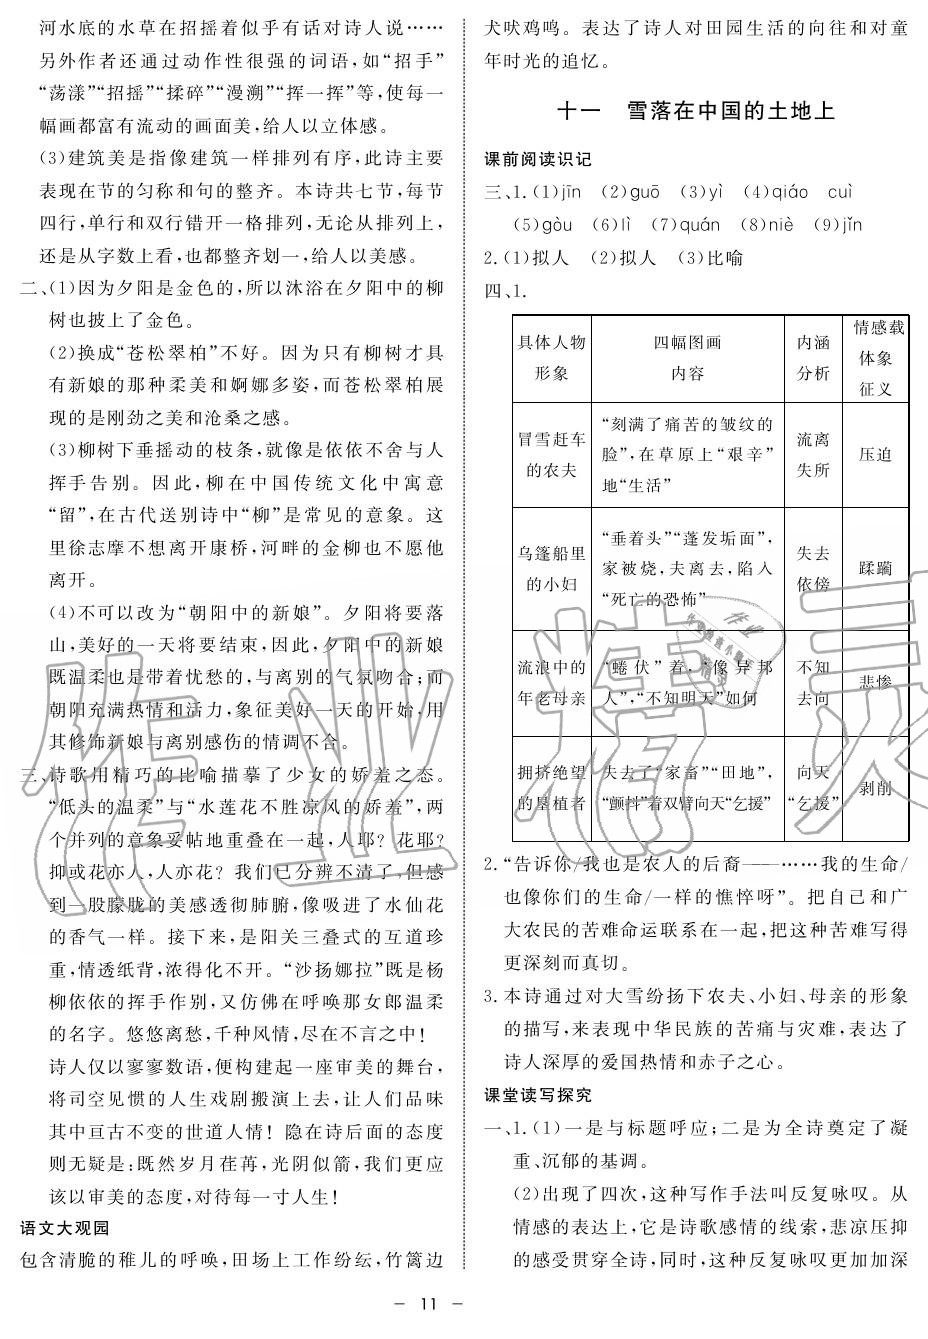 河水底的水草在招摇着似乎有话对诗人说……
另外作者还通过动作性很强的词语,如“招手”
“荡漾”“招摇”“揉碎”“漫溯”“挥一挥”等,使每一
幅画都富有流动的画面美,给人以立体感。
(3)建筑美是指像建筑一样排列有序,此诗主要
表现在节的匀称和句的整齐。本诗共七节,每节
四行,单行和双行错开一格排列,无论从排列上,
还是从字数上看,也都整齐划一,给人以美感。
二、(1)因为夕阳是金色的,所以沐浴在夕阳中的柳
树也披上了金色。
(2)换成“苍松翠柏”不好。因为只有柳树才具
有新娘的那种柔美和婀娜多姿,而苍松翠柏展
现的是刚劲之美和沧桑之感。
(3)柳树下垂摇动的枝条,就像是依依不舍与人
挥手告别。因此,柳在中国传统文化中寓意
“留”,在古代送别诗中“柳”是常见的意象。这
里徐志摩不想离开康桥,河畔的金柳也不愿他
离开。
(4)不可以改为“朝阳中的新娘”。夕阳将要落
山,美好的一天将要结束,因此,夕阳中的新娘
既温柔也是带着忧愁的,与离别的气氛吻合;而
朝阳充满热情和活力,象征美好一天的开始,用
其修饰新娘与离别感伤的情调不合。
三、诗歌用精巧的比喻描摹了少女的娇羞之态。
“低头的温柔”与“水莲花不胜凉风的娇羞”,两
个并列的意象妥帖地重叠在一起,人耶?花耶?
抑或花亦人,人亦花?我们已分辨不清了,但感
到一股朦胧的美感透彻肺腑,像吸进了水仙花
的香气一样。接下来,是阳关三叠式的互道珍
重,情透纸背,浓得化不开。“沙扬娜拉”既是杨
柳依依的挥手作别,又仿佛在呼唤那女郎温柔
的名字。悠悠离愁,千种风情,尽在不言之中!
诗人仅以寥寥数语,便构建起一座审美的舞台,
将司空见惯的人生戏剧搬演上去,让人们品味
其中亘古不变的世道人情!隐在诗后面的态度
则无疑是:既然岁月荏苒,光阴似箭,我们更应
该以审美的态度,对待每一寸人生!
语文大观园
包含清脆的稚儿的呼唤,田场上工作纷纭,竹篱边
犬吠鸡鸣。表达了诗人对田园生活的向往和对童
年时光的追忆。
十一 雪落在中国的土地上
课前阅读识记
三、1.(1)jīn (2)guō (3)yì (4)qiáo cuì
(5)gòu (6)lì (7)quán (8)niè (9)jǐn
2.(1)拟人 (2)拟人 (3)比喻
四、1.
具体人物
形象
四幅图画
内容
内涵
分析
情感载
体象
征义
冒雪赶车
的农夫
“刻满了痛苦的皱纹的
脸”,在草原上“艰辛”
地“生活”
流离
失所
压迫
乌篷船里
的小妇
“垂着头”“蓬发垢面”,
家被烧,夫离去,陷入
“死亡的恐怖”
失去
依傍
蹂躏
流浪中的
年老母亲
“蜷伏”着,“像异邦
人”,“不知明天”如何
不知
去向
悲惨
拥挤绝望
的垦植者
失去了“家畜”“田地”,
“颤抖”着双臂向天“乞援”
向天
“乞援”
剥削
2.“告诉你/我也是农人的后裔——……我的生命/
也像你们的生命/一样的憔悴呀”。把自己和广
大农民的苦难命运联系在一起,把这种苦难写得
更深刻而真切。
3.本诗通过对大雪纷扬下农夫、小妇、母亲的形象
的描写,来表现中华民族的苦痛与灾难,表达了
诗人深厚的爱国热情和赤子之心。
课堂读写探究
一、1.(1)一是与标题呼应;二是为全诗奠定了凝
重、沉郁的基调。
(2)出现了四次,这种写作手法叫反复咏叹。从
情感的表达上,它是诗歌感情的线索,悲凉压抑
的感受贯穿全诗,同时,这种反复咏叹更加加深
— 11 —
作业精灵